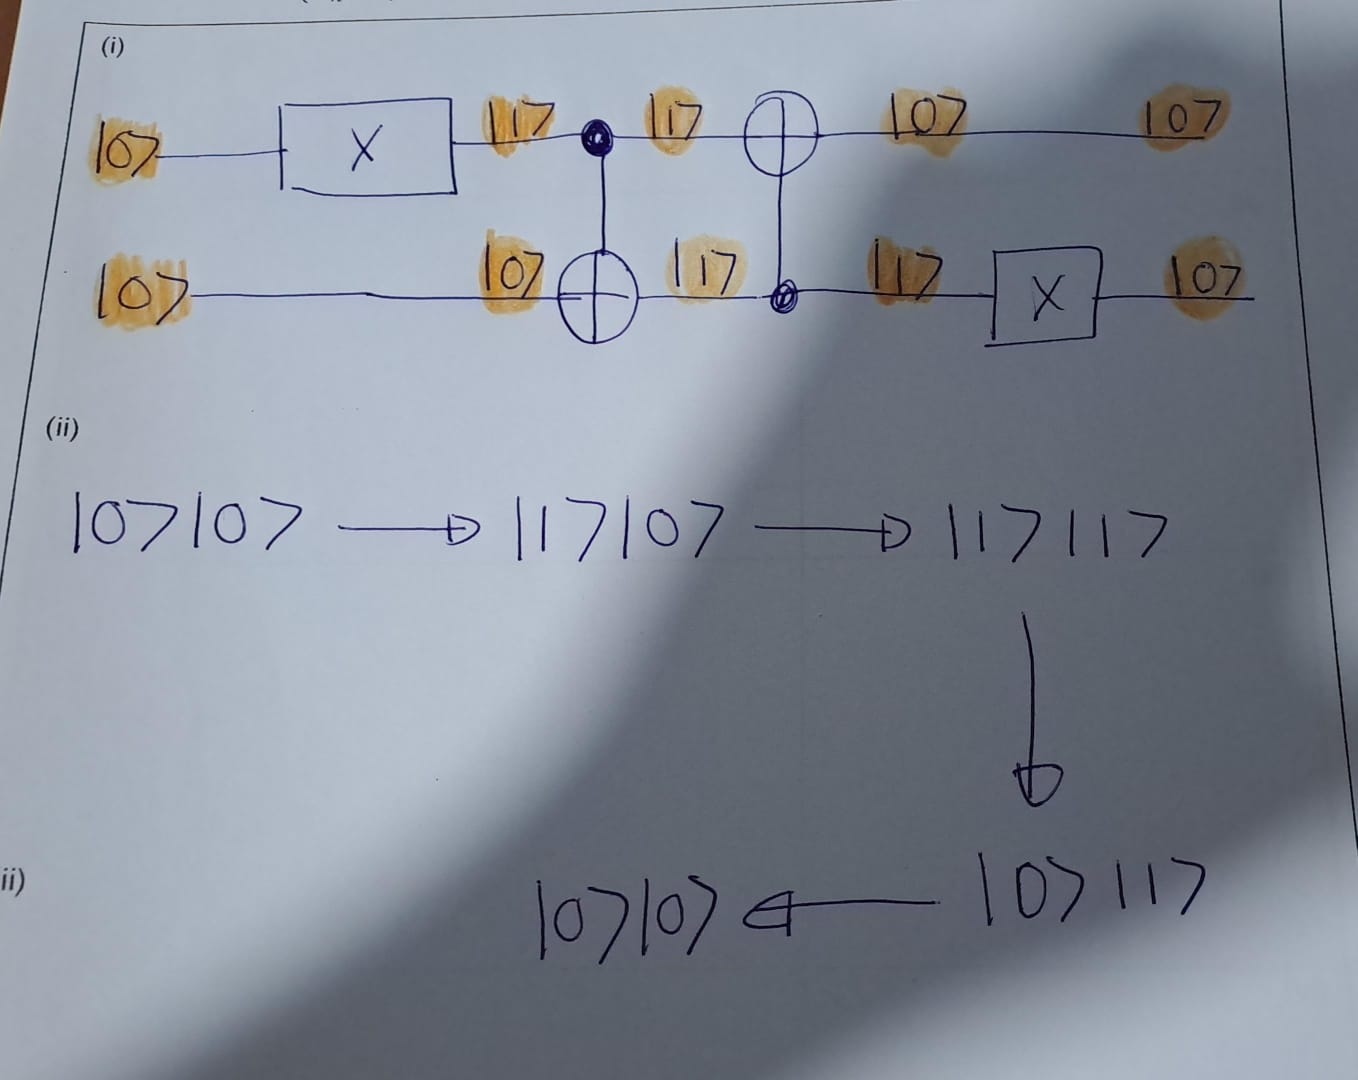 (i)
|0⟩ X |1⟩ |1⟩ |0⟩ |0⟩
|0⟩ |0⟩ |1⟩ |1⟩ X |0⟩
(ii)
|0⟩|0⟩ → |1⟩|0⟩ → |1⟩|1⟩
↓
ii)
|0⟩|0⟩ ← |0⟩|1⟩